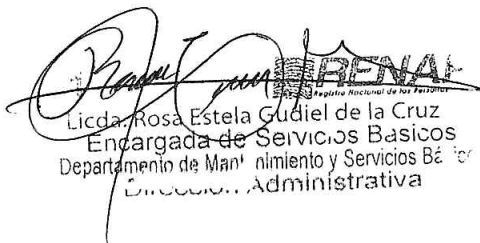 RENAP
Registro Nacional de las Personas
Licda. Rosa Estela Gudiel de la Cruz
Encargada de Servicios Básicos
Departamento de Mantenimiento y Servicios Básicos
Dirección Administrativa